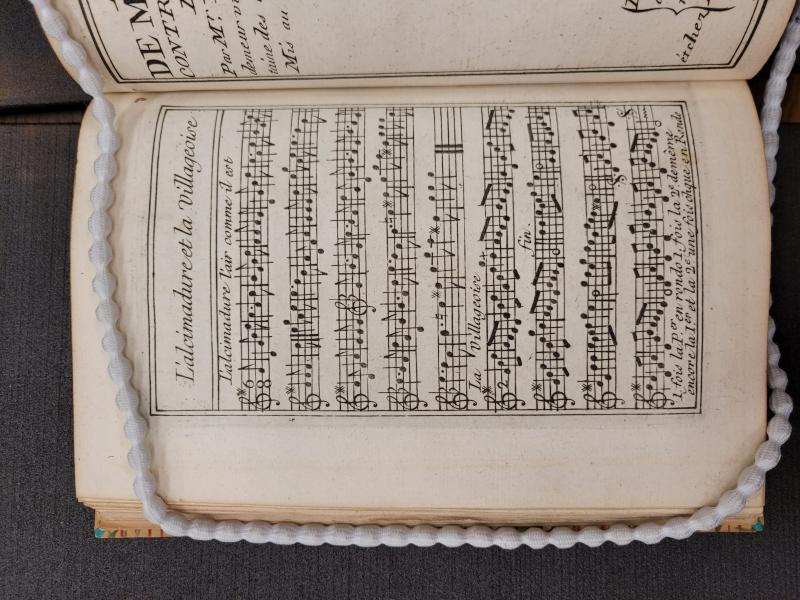 DE M
CONTR
Par Mr.
demeur
taine des
Mis au
et chez
L'alcimadure et la Villageoise
L'alcimadure l'air comme il est
6
8
La Villageoise
2
fin.
1. fois la Pre. en rondo 1. fois la 2e de même
encore la 1re et la 2e une fois chaque en Rondo